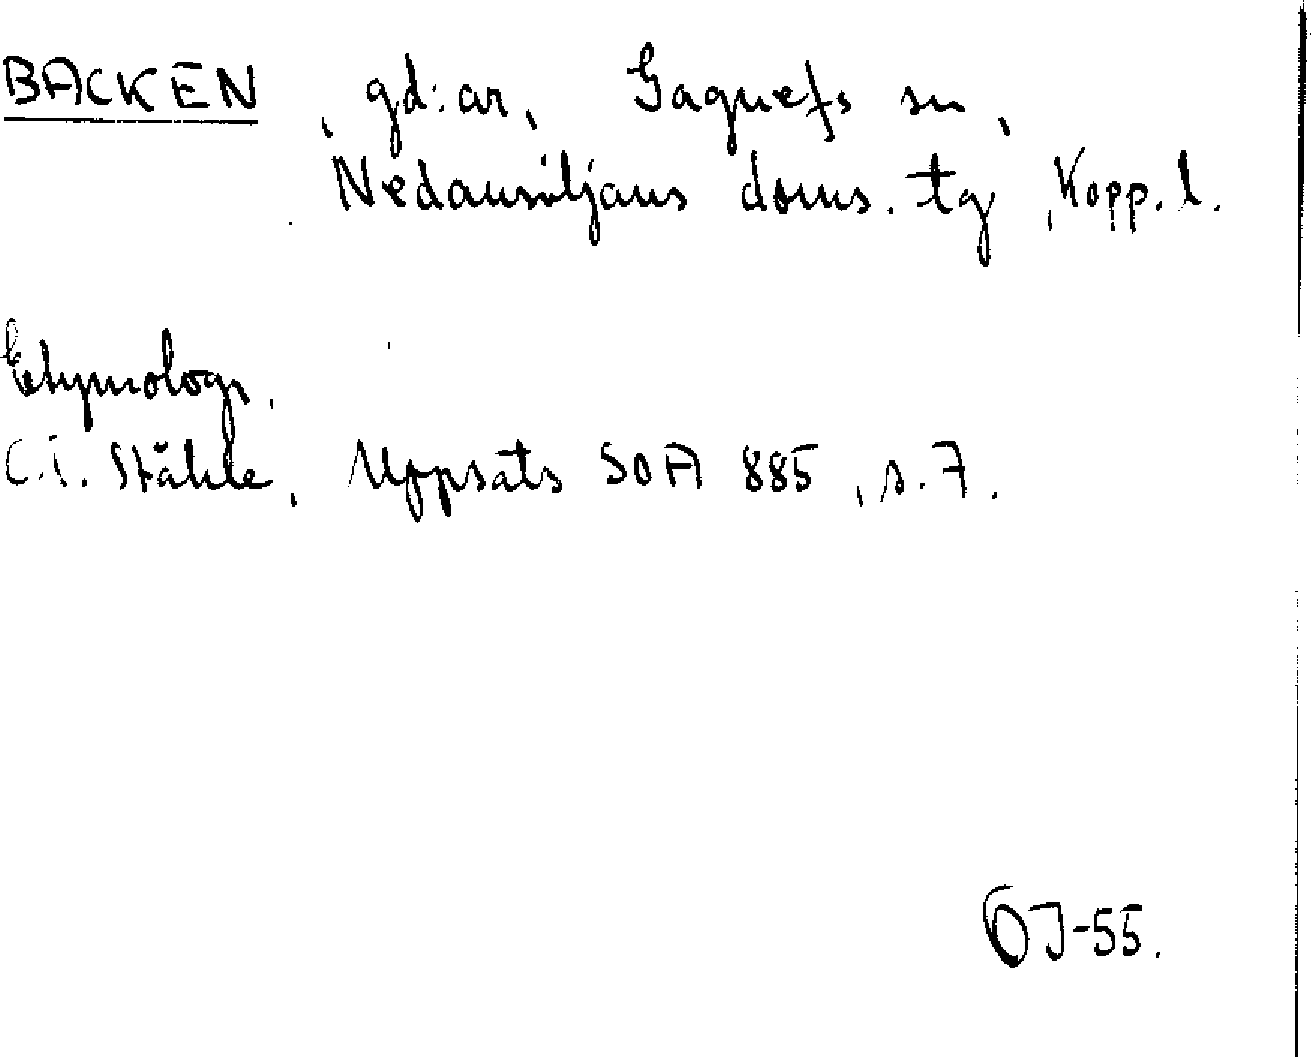 BACKEN, gd:ar, Gagnefs sn,
Nedansiljans doms. tg, Kopp. l.
Etymologi.
C.I. Ståhle, Uppsats SOA 885, s. 7.
OJ-55.